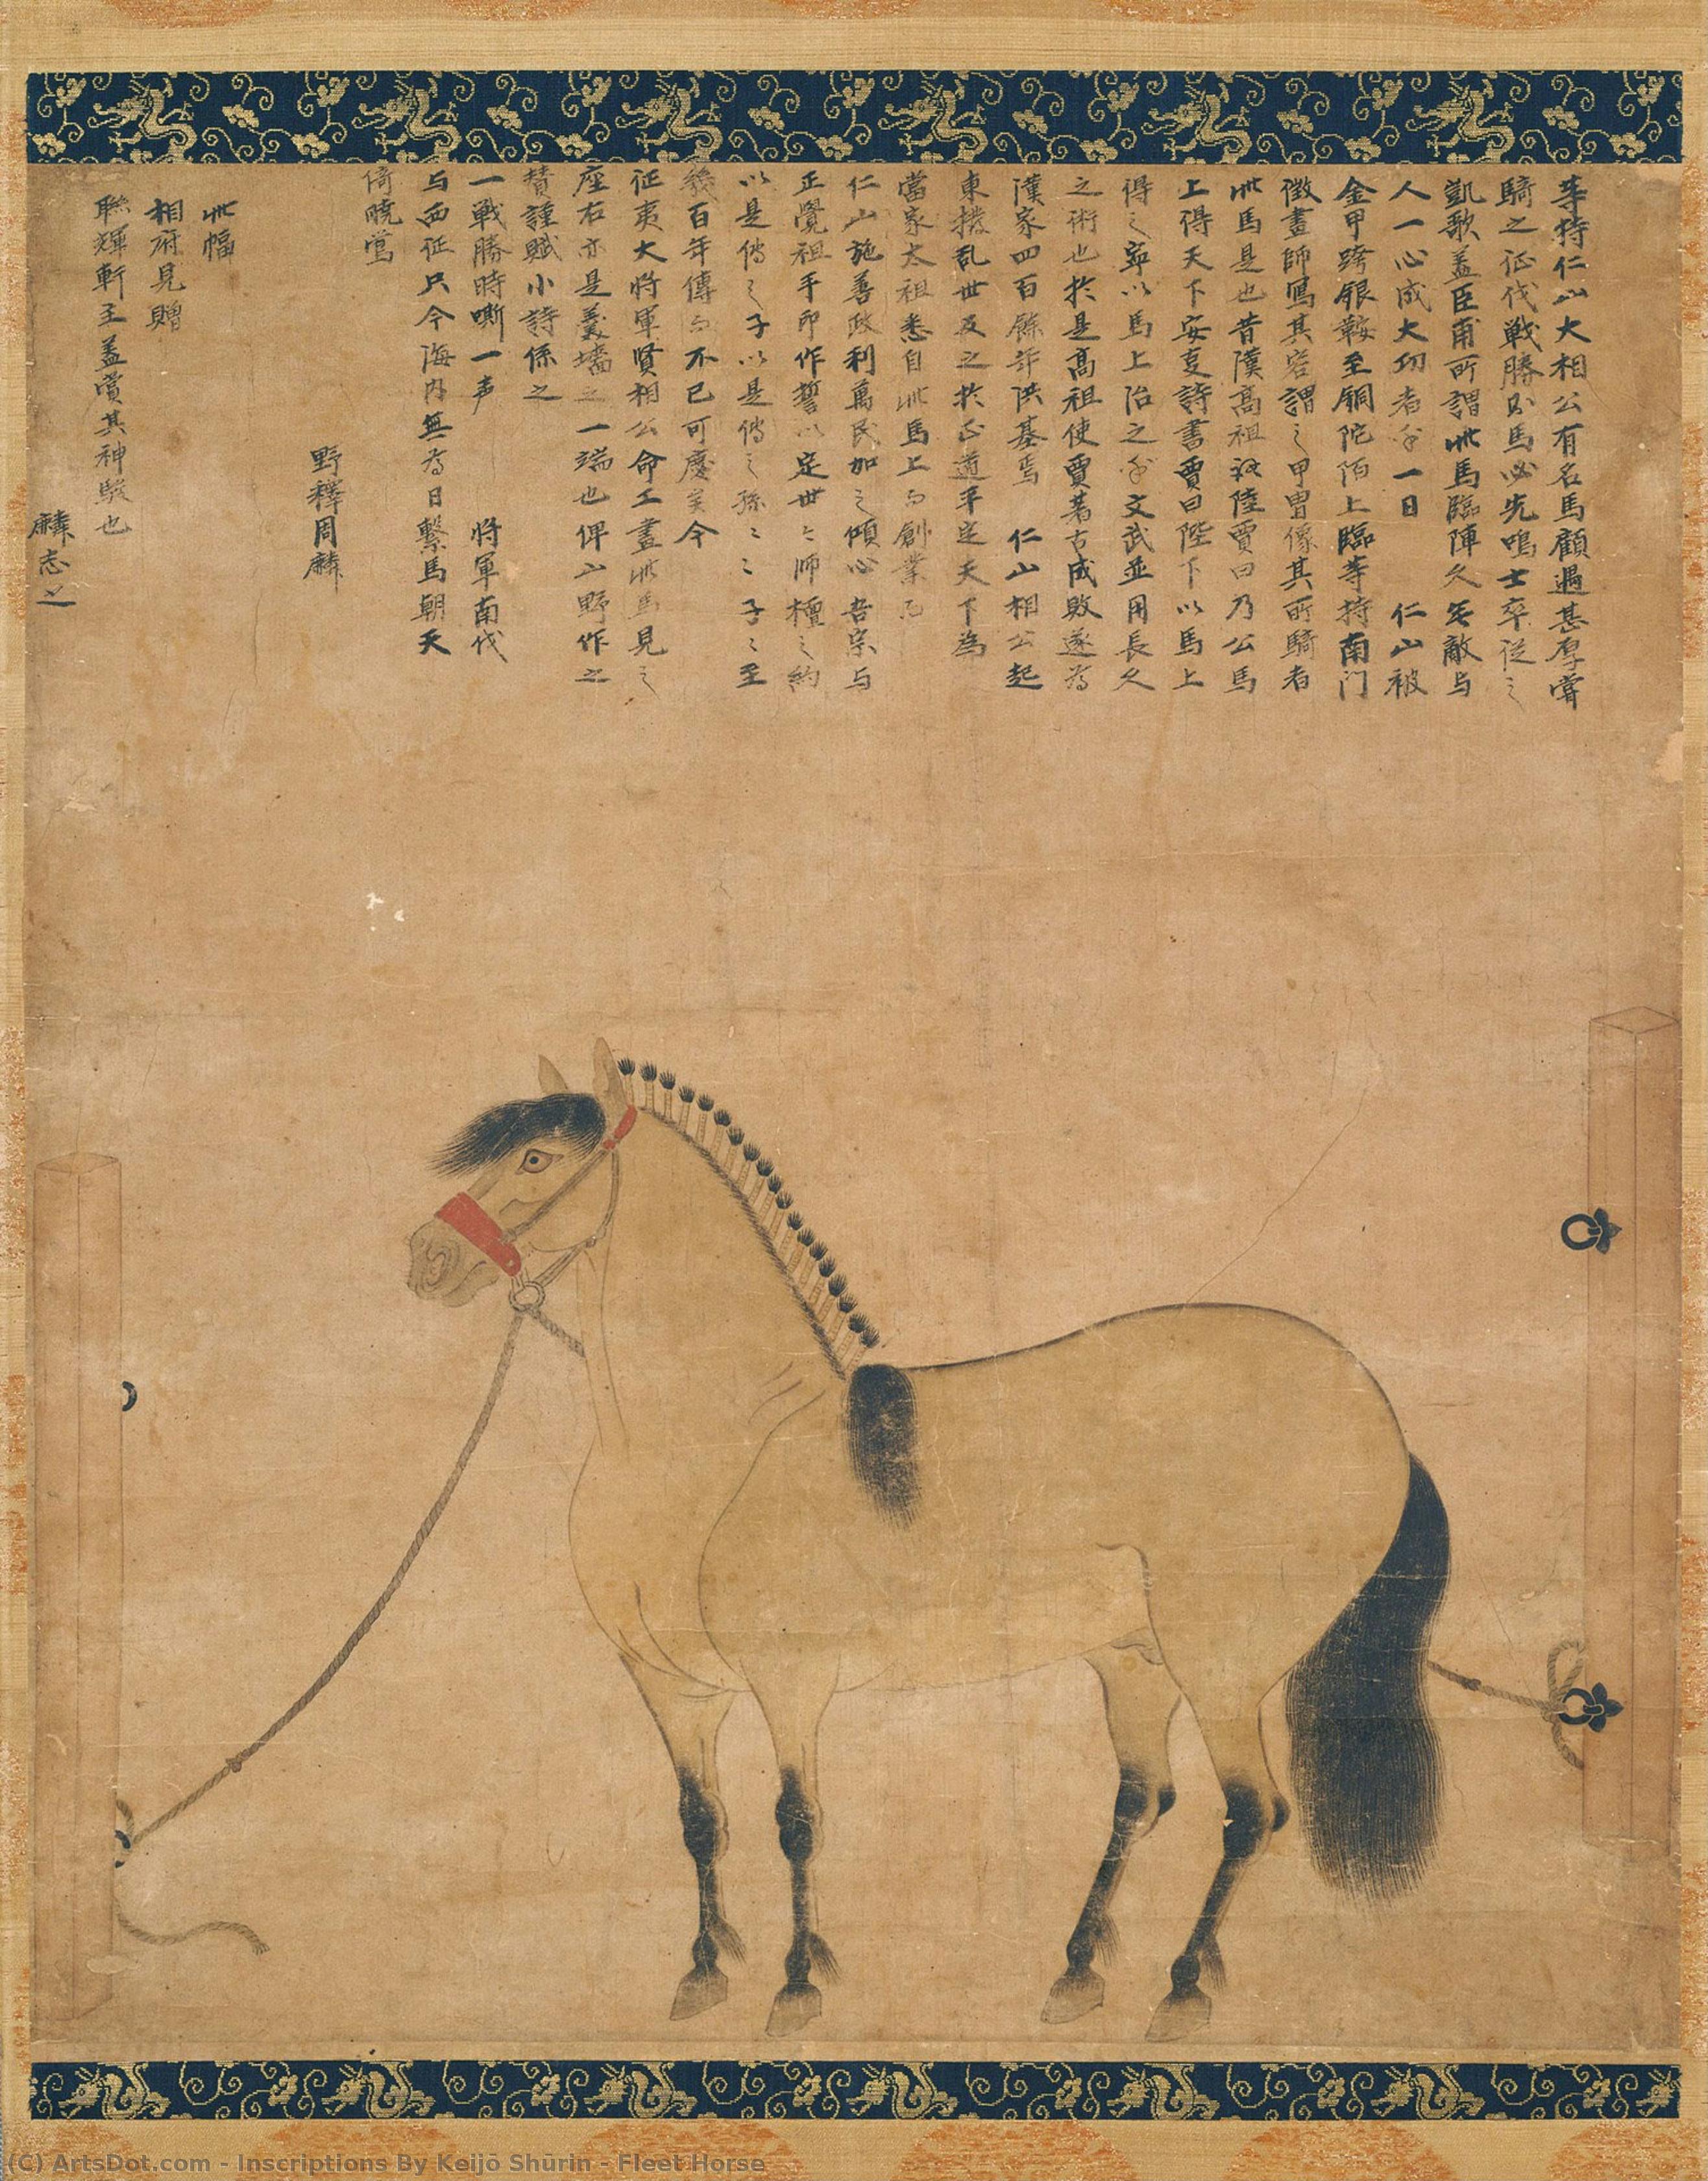 等持仁山大相公有名馬顧遇甚厚嘗
騎之征伐戦勝則馬必先鳴士卒従之
凱歌蓋臣甫所謂此馬臨陣久無敵与
人一心成大功者乎一日 仁山被
金甲跨銀鞍至銅陀陌上臨等持南门
徴畫師寫其容謂之甲冑像其所騎者
此馬是也昔漢高祖 陸賈曰乃公馬
上得天下安事詩書賈曰陛下以馬上
得之寧以馬上治之乎文武並用長久
之術也於是高祖使賈著古成敗遂為
漢家四百餘年洪基焉 仁山相公起
東撥乱世反之於正道平定天下為
當家太祖悉自此馬上而創業而
仁山施善政利萬民加之傾心吾宗与
正覺祖手印作誓以定世々師檀之約
以是傳之子以是傳之孫々々子々至
幾百年傳而不已可慶矣今
征夷大将軍賢相公命工畫此馬見之
座右亦是羹墻之一端也俾山野作之
賛謹賦小詩係之
一戦勝時嘶一声 将軍南伐
与西征只今海内無為日繫馬朝天
倚曉鶯
野釋周麟
此幅
相府見贈
聯輝軒主蓋賞其神駿也
麟志之
(C) ArtsDot.com - Inscriptions By Keijō Shūrin - Fleet Horse